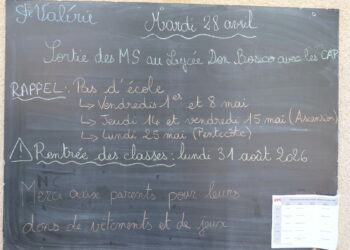 St Valérie
Mardi 28 avril
Sortie des MS au Lycée Don Bosco avec les CAP
RAPPEL : Pas d'école
↳ Vendredis 1er et 8 mai
↳ Jeudi 14 et vendredi 15 mai (Ascension)
↳ Lundi 25 mai (Pentecôte)
⚠ Rentrée des classes : lundi 31 août 2026
Merci aux parents pour leurs
dons de vêtements et de jeux